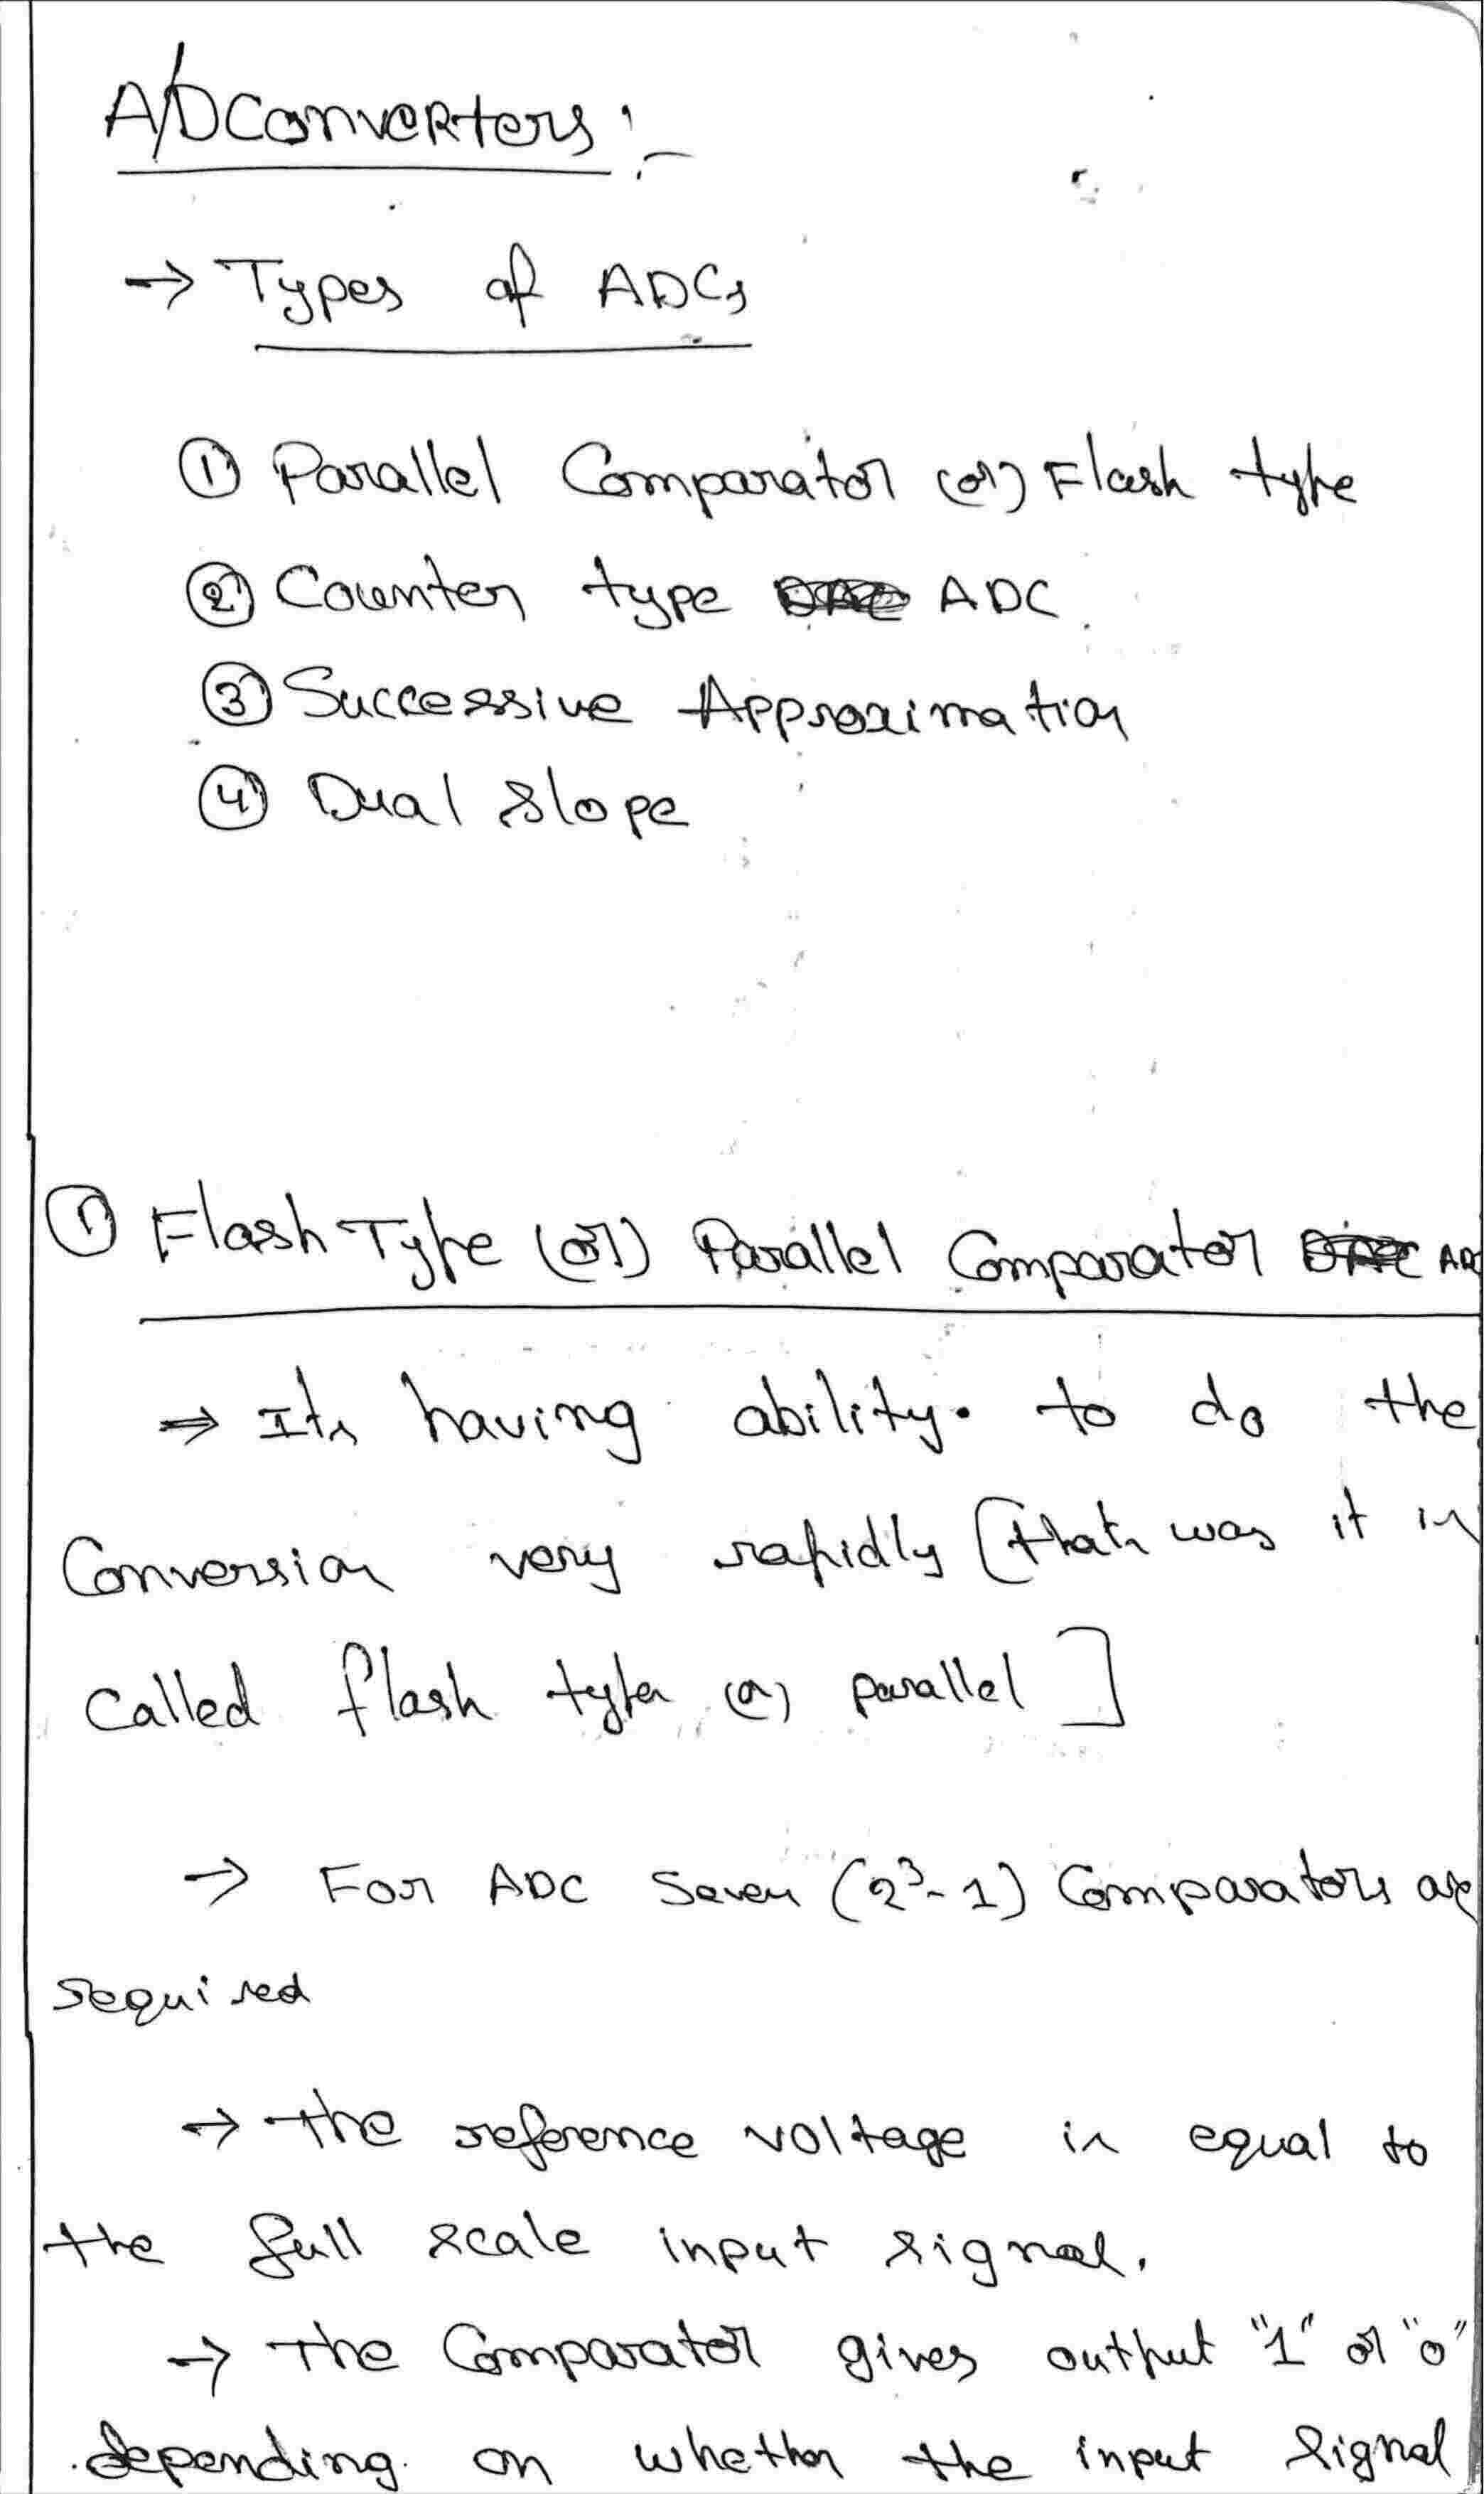 A/D Converters :-
→ Types of ADCs
① Parallel Comparator (or) Flash type
② Counter type ADC
③ Successive Approximation
④ Dual slope
① Flash Type (or) Parallel Comparator
⇒ Its having ability to do the
Conversion very rapidly [that's was it is
called flash type (or) parallel]
→ For ADC Seven (2³-1) Comparators are
required
→ The reference voltage is equal to
the full scale input signal.
→ The Comparator gives output "1" or "0"
depending on whether the input signal